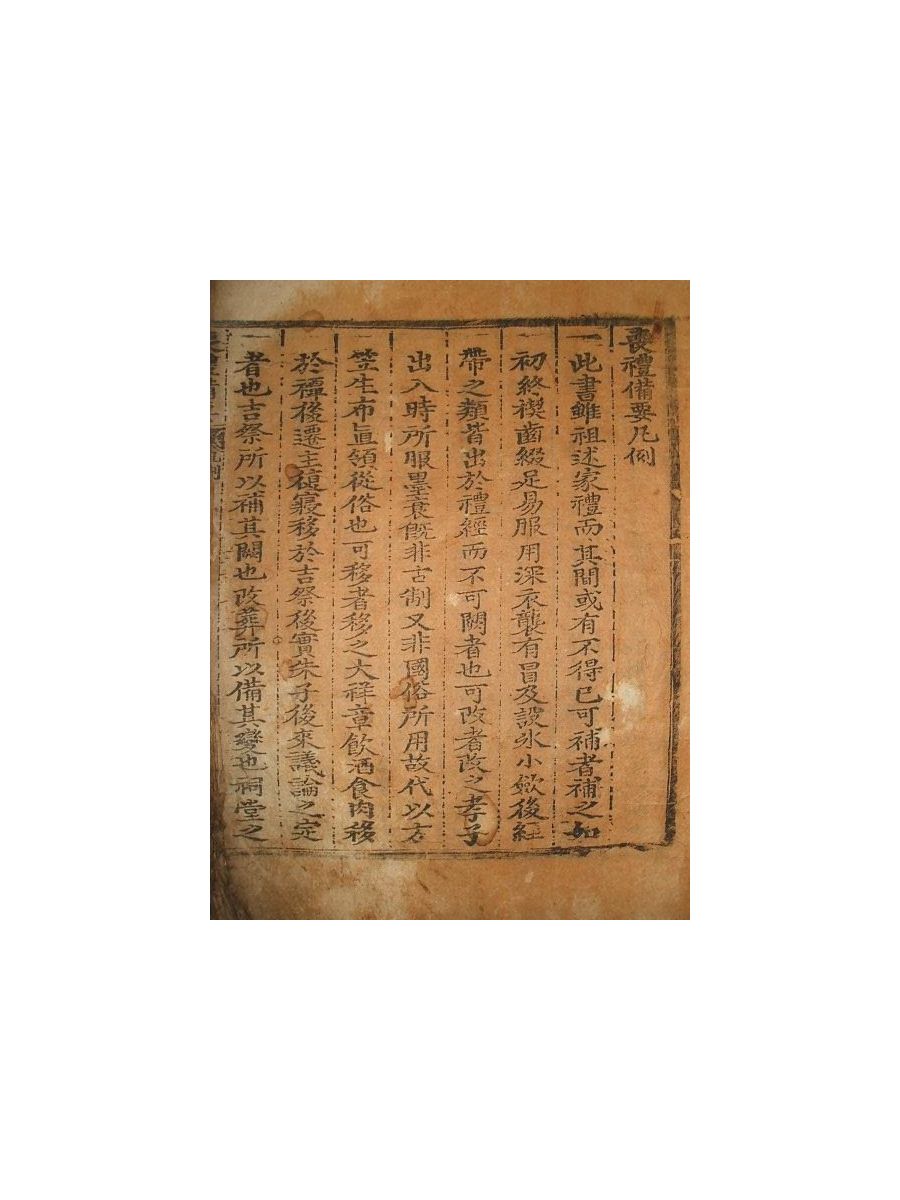 喪禮備要凡例
一此書雖祖述家禮而其間或有不得已可補者補之如
初終楔齒綴足易服用深衣襲有冒及設氷小斂後絰
帶之類皆出於禮經而不可闕者也可改者改之孝子
出入時所服墨衰旣非古制又非國俗所用故代以方
笠生布直領從俗也可移者移之大祥章飮酒食肉移
於禫後遷主複寢移於吉祭後實朱子後來議論之定
者也吉祭所以補其闕也改葬所以備其變也祠堂之